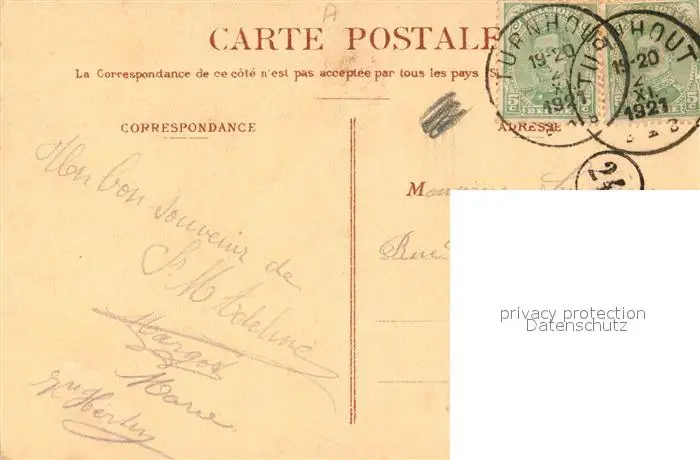 A
CARTE POSTALE
La Correspondance de ce côté n'est pas acceptée par tous les pays
CORRESPONDANCE
ADRESSE
TURNHOUT
19-20
XI
1921
TURNHOUT
19-20
XI
1921
24
Mon bon souvenir de
Monsieur
Rue
Margot
Marie
privacy protection
Datenschutz